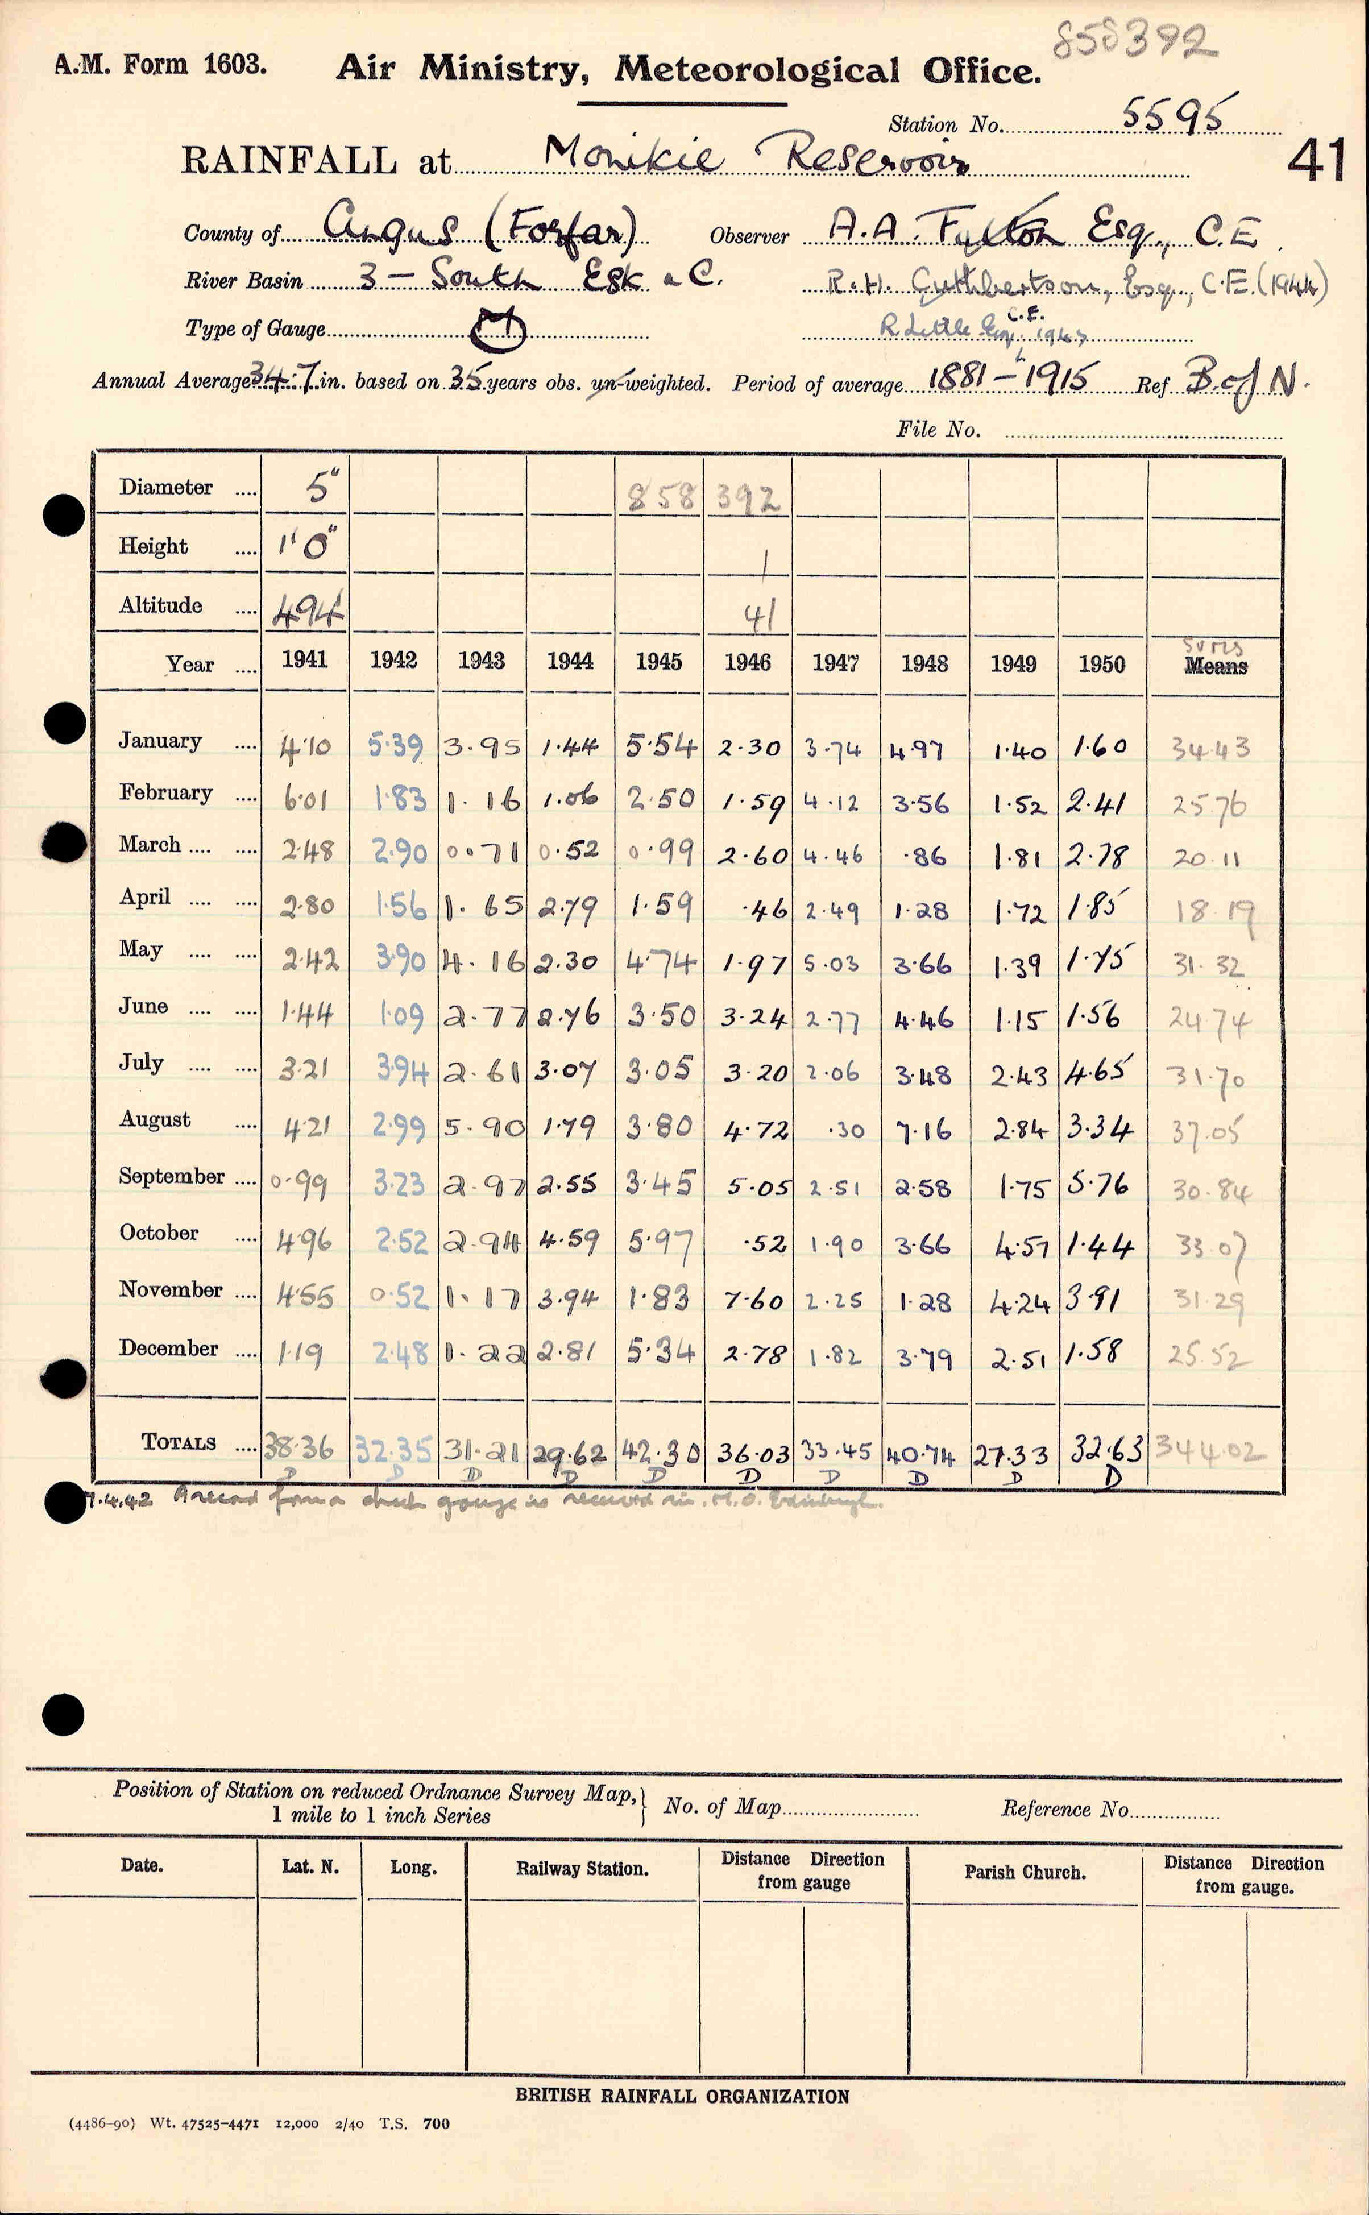 858392
A.M. Form 1603. Air Ministry, Meteorological Office.
Station No. 5595
RAINFALL at Monikie Reservoir 41
County of Angus (Forfar) Observer A.A. Fulton Esq., C.E.
River Basin 3 — South Esk &C. R.H. Cuthbertson, Esq., C.E. (1944)
Type of Gauge M R Little Esq, C.E. 1947
Annual Average 34.7 in. based on 35 years obs. un-weighted. Period of average 1881–1915 Ref B. of N.
File No.
Diameter .... 5" 858 392
Height .... 1'0" 1
Altitude .... 494 41
Year .... 1941 1942 1943 1944 1945 1946 1947 1948 1949 1950 Sums Means
January .... 4.10 5.39 3.95 1.44 5.54 2.30 3.74 4.97 1.40 1.60 34.43
February .... 6.01 1.83 1.16 1.06 2.50 1.59 4.12 3.56 1.52 2.41 25.76
March .... .... 2.48 2.90 0.71 0.52 0.99 2.60 4.46 .86 1.81 2.78 20.11
April .... .... 2.80 1.56 1.65 2.79 1.59 .46 2.49 1.28 1.72 1.85 18.19
May .... .... 2.42 3.90 4.16 2.30 4.74 1.97 5.03 3.66 1.39 1.75 31.32
June .... .... 1.44 1.09 2.77 2.76 3.50 3.24 2.77 4.46 1.15 1.56 24.74
July .... .... 3.21 3.94 2.61 3.07 3.05 3.20 2.06 3.48 2.43 4.65 31.70
August .... 4.21 2.99 5.90 1.79 3.80 4.72 .30 7.16 2.84 3.34 37.05
September .... 0.99 3.23 2.97 2.55 3.45 5.05 2.51 2.58 1.75 5.76 30.84
October .... 4.96 2.52 2.94 4.59 5.97 .52 1.90 3.66 4.57 1.44 33.07
November .... 4.55 0.52 1.17 3.94 1.83 7.60 2.25 1.28 4.24 3.91 31.29
December .... 1.19 2.48 1.22 2.81 5.34 2.78 1.82 3.79 2.51 1.58 25.52
TOTALS .... 38.36 32.35 31.21 29.62 42.30 36.03 33.45 40.74 27.33 32.63 344.02
D D D D D D D D D D
7.4.42 A record from a check gauge is received in M.O. Edinburgh.
Position of Station on reduced Ordnance Survey Map, 1 mile to 1 inch Series } No. of Map Reference No.
Date. Lat. N. Long. Railway Station. Distance Direction from gauge Parish Church. Distance Direction from gauge.
BRITISH RAINFALL ORGANIZATION
(4486–90) Wt. 47525–4471 12,000 2/40 T.S. 700